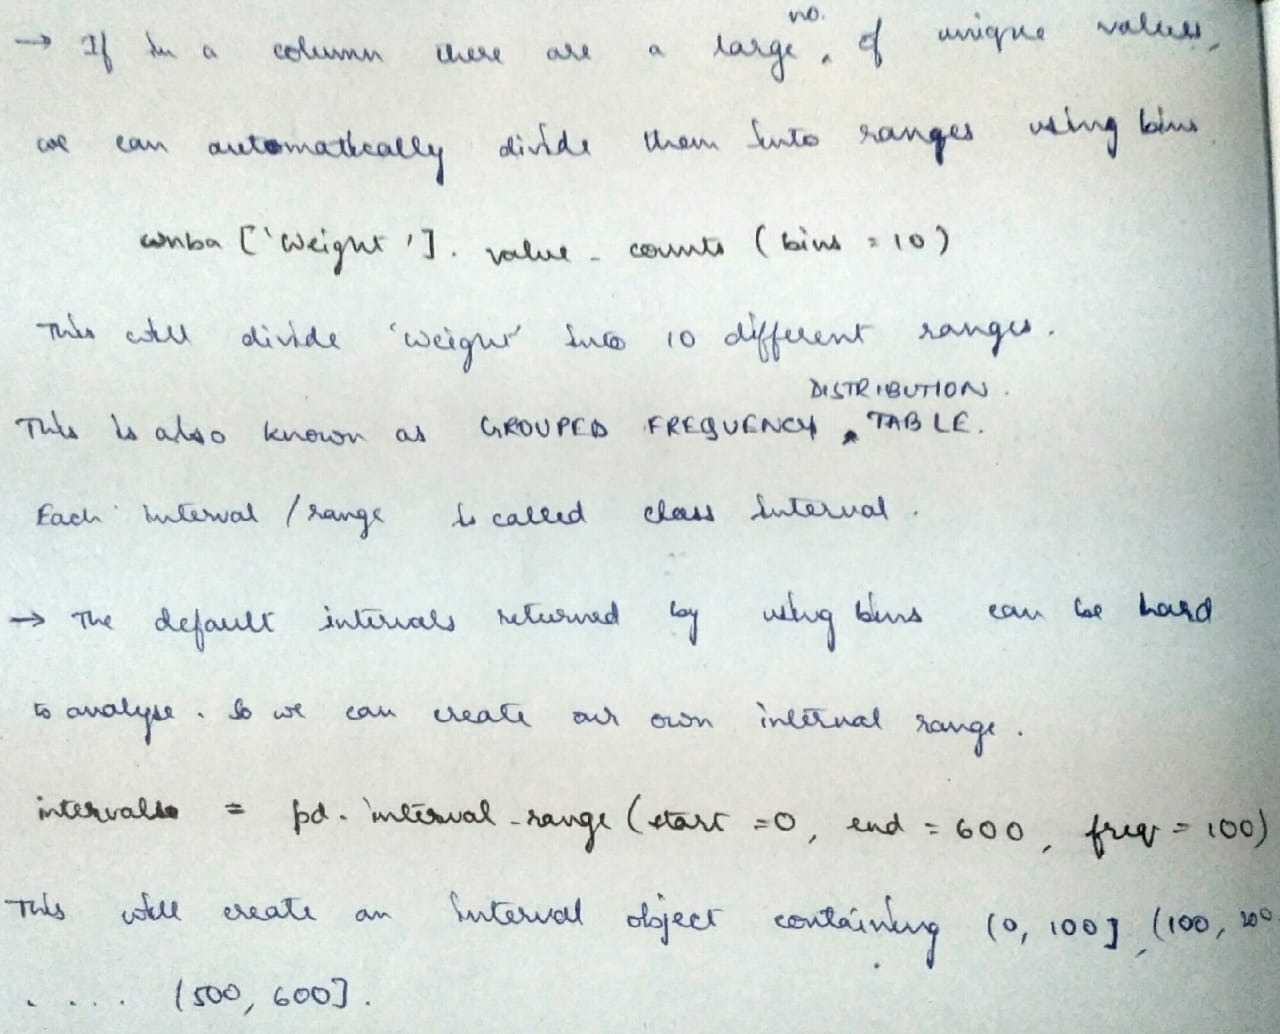 → If in a column there are a large no. of unique values,
we can automatically divide them into ranges using bins
wnba ['Weight']. value_counts (bins = 10)
This will divide 'weight' into 10 different ranges.
This is also known as GROUPED FREQUENCY DISTRIBUTION TABLE.
Each interval / range is called class interval.
→ The default intervals returned by using bins can be hard
to analyse. So we can create our own interval range.
intervals = pd. interval_range (start = 0, end = 600, freq = 100)
This will create an interval object containing (0, 100], (100, 200
. . . . (500, 600].